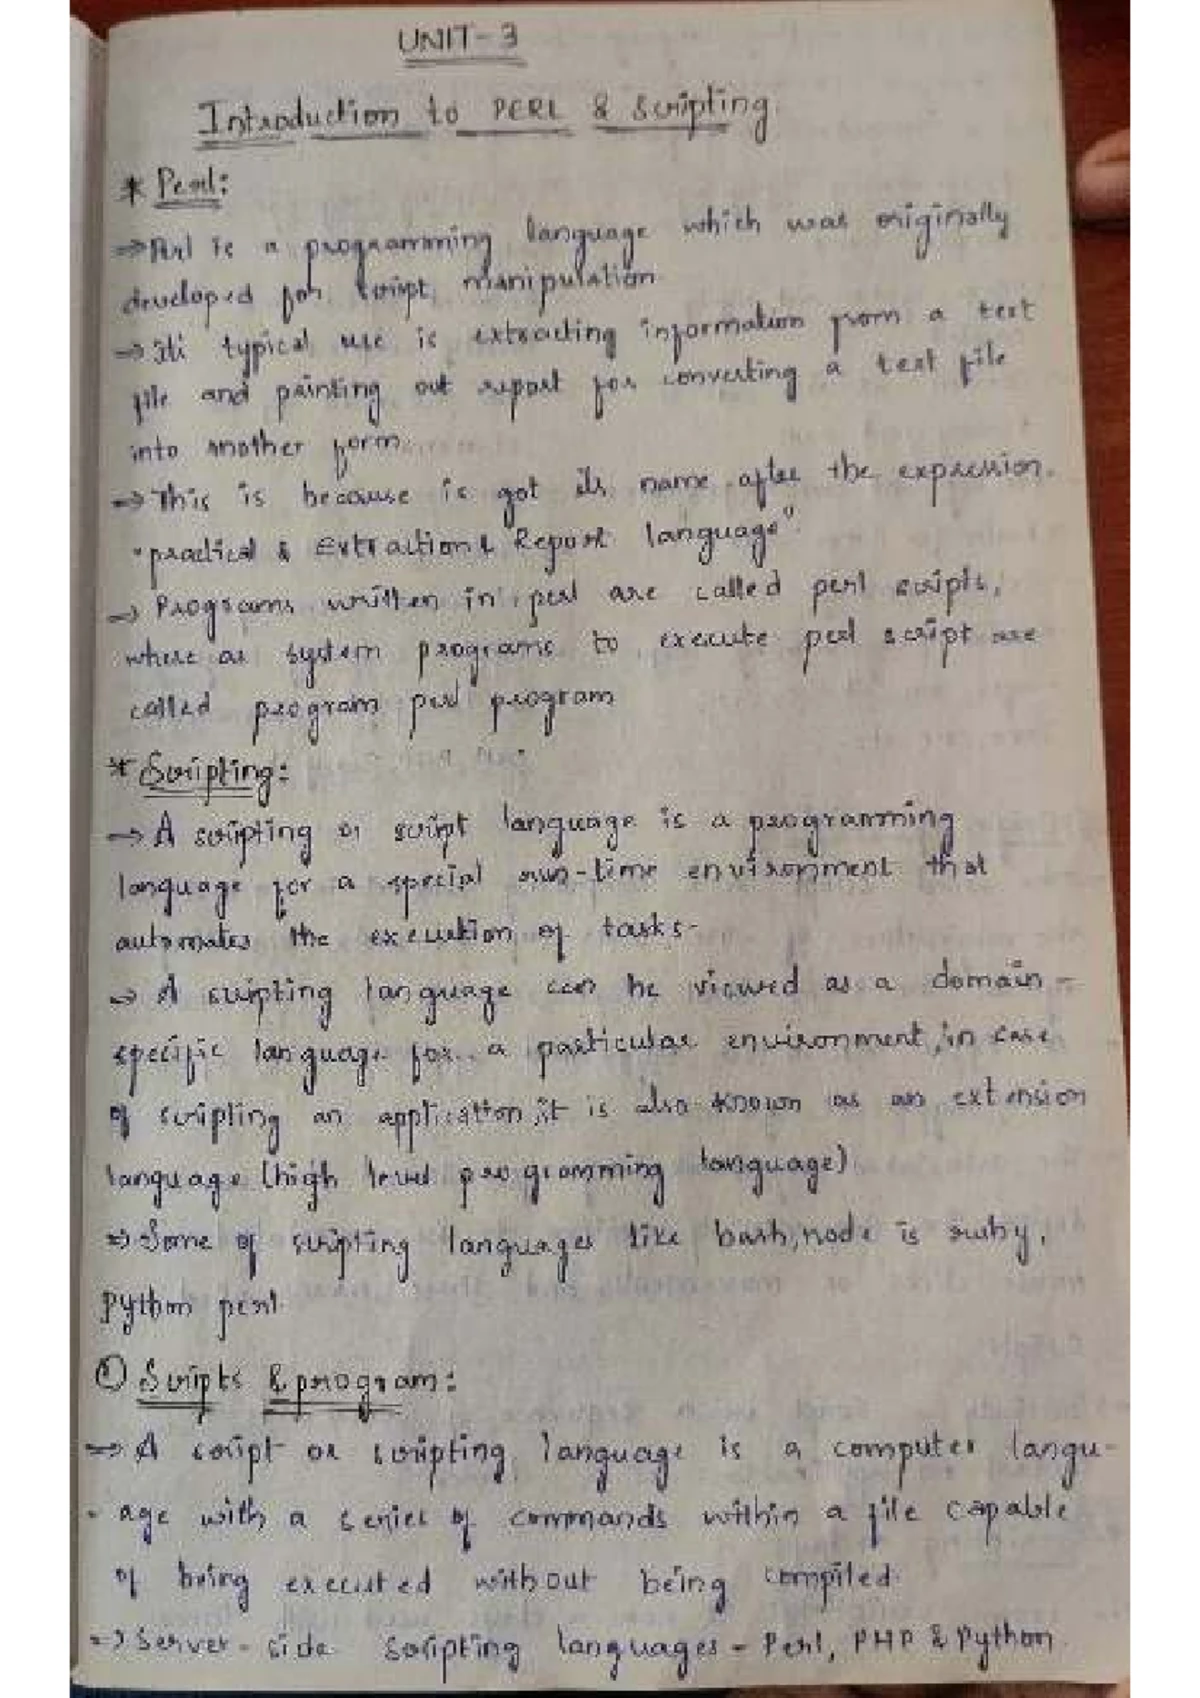 UNIT-3
Introduction to PERL & Scripting.
* Perl:
⇒ Perl is a programming language which was originally
developed for script manipulation
⇒ Its typical use is extracting information from a text
file and printing out report for converting a text file
into another form.
⇒ This is because is got its name after the expression.
"practical & Extraction & Report language".
→ Programs written in perl are called perl scripts,
where as system programs to execute perl script are
called program perl program
* Scripting:
→ A scripting or script language is a programming
language for a special run-time environment that
automates the execution of tasks.
⇒ A scripting language can be viewed as a domain-
specific language for a particular environment, in case
of scripting an application, it is also known as an extension
language (high level programming language)
⇒ Some of scripting languages like bash, node is ruby,
Python perl.
① Scripts & program:
⇒ A script or scripting language is a computer langu-
- age with a series of commands within a file capable
of being executed without being compiled.
⇒ Server-side scripting languages - Perl, PHP & Python.